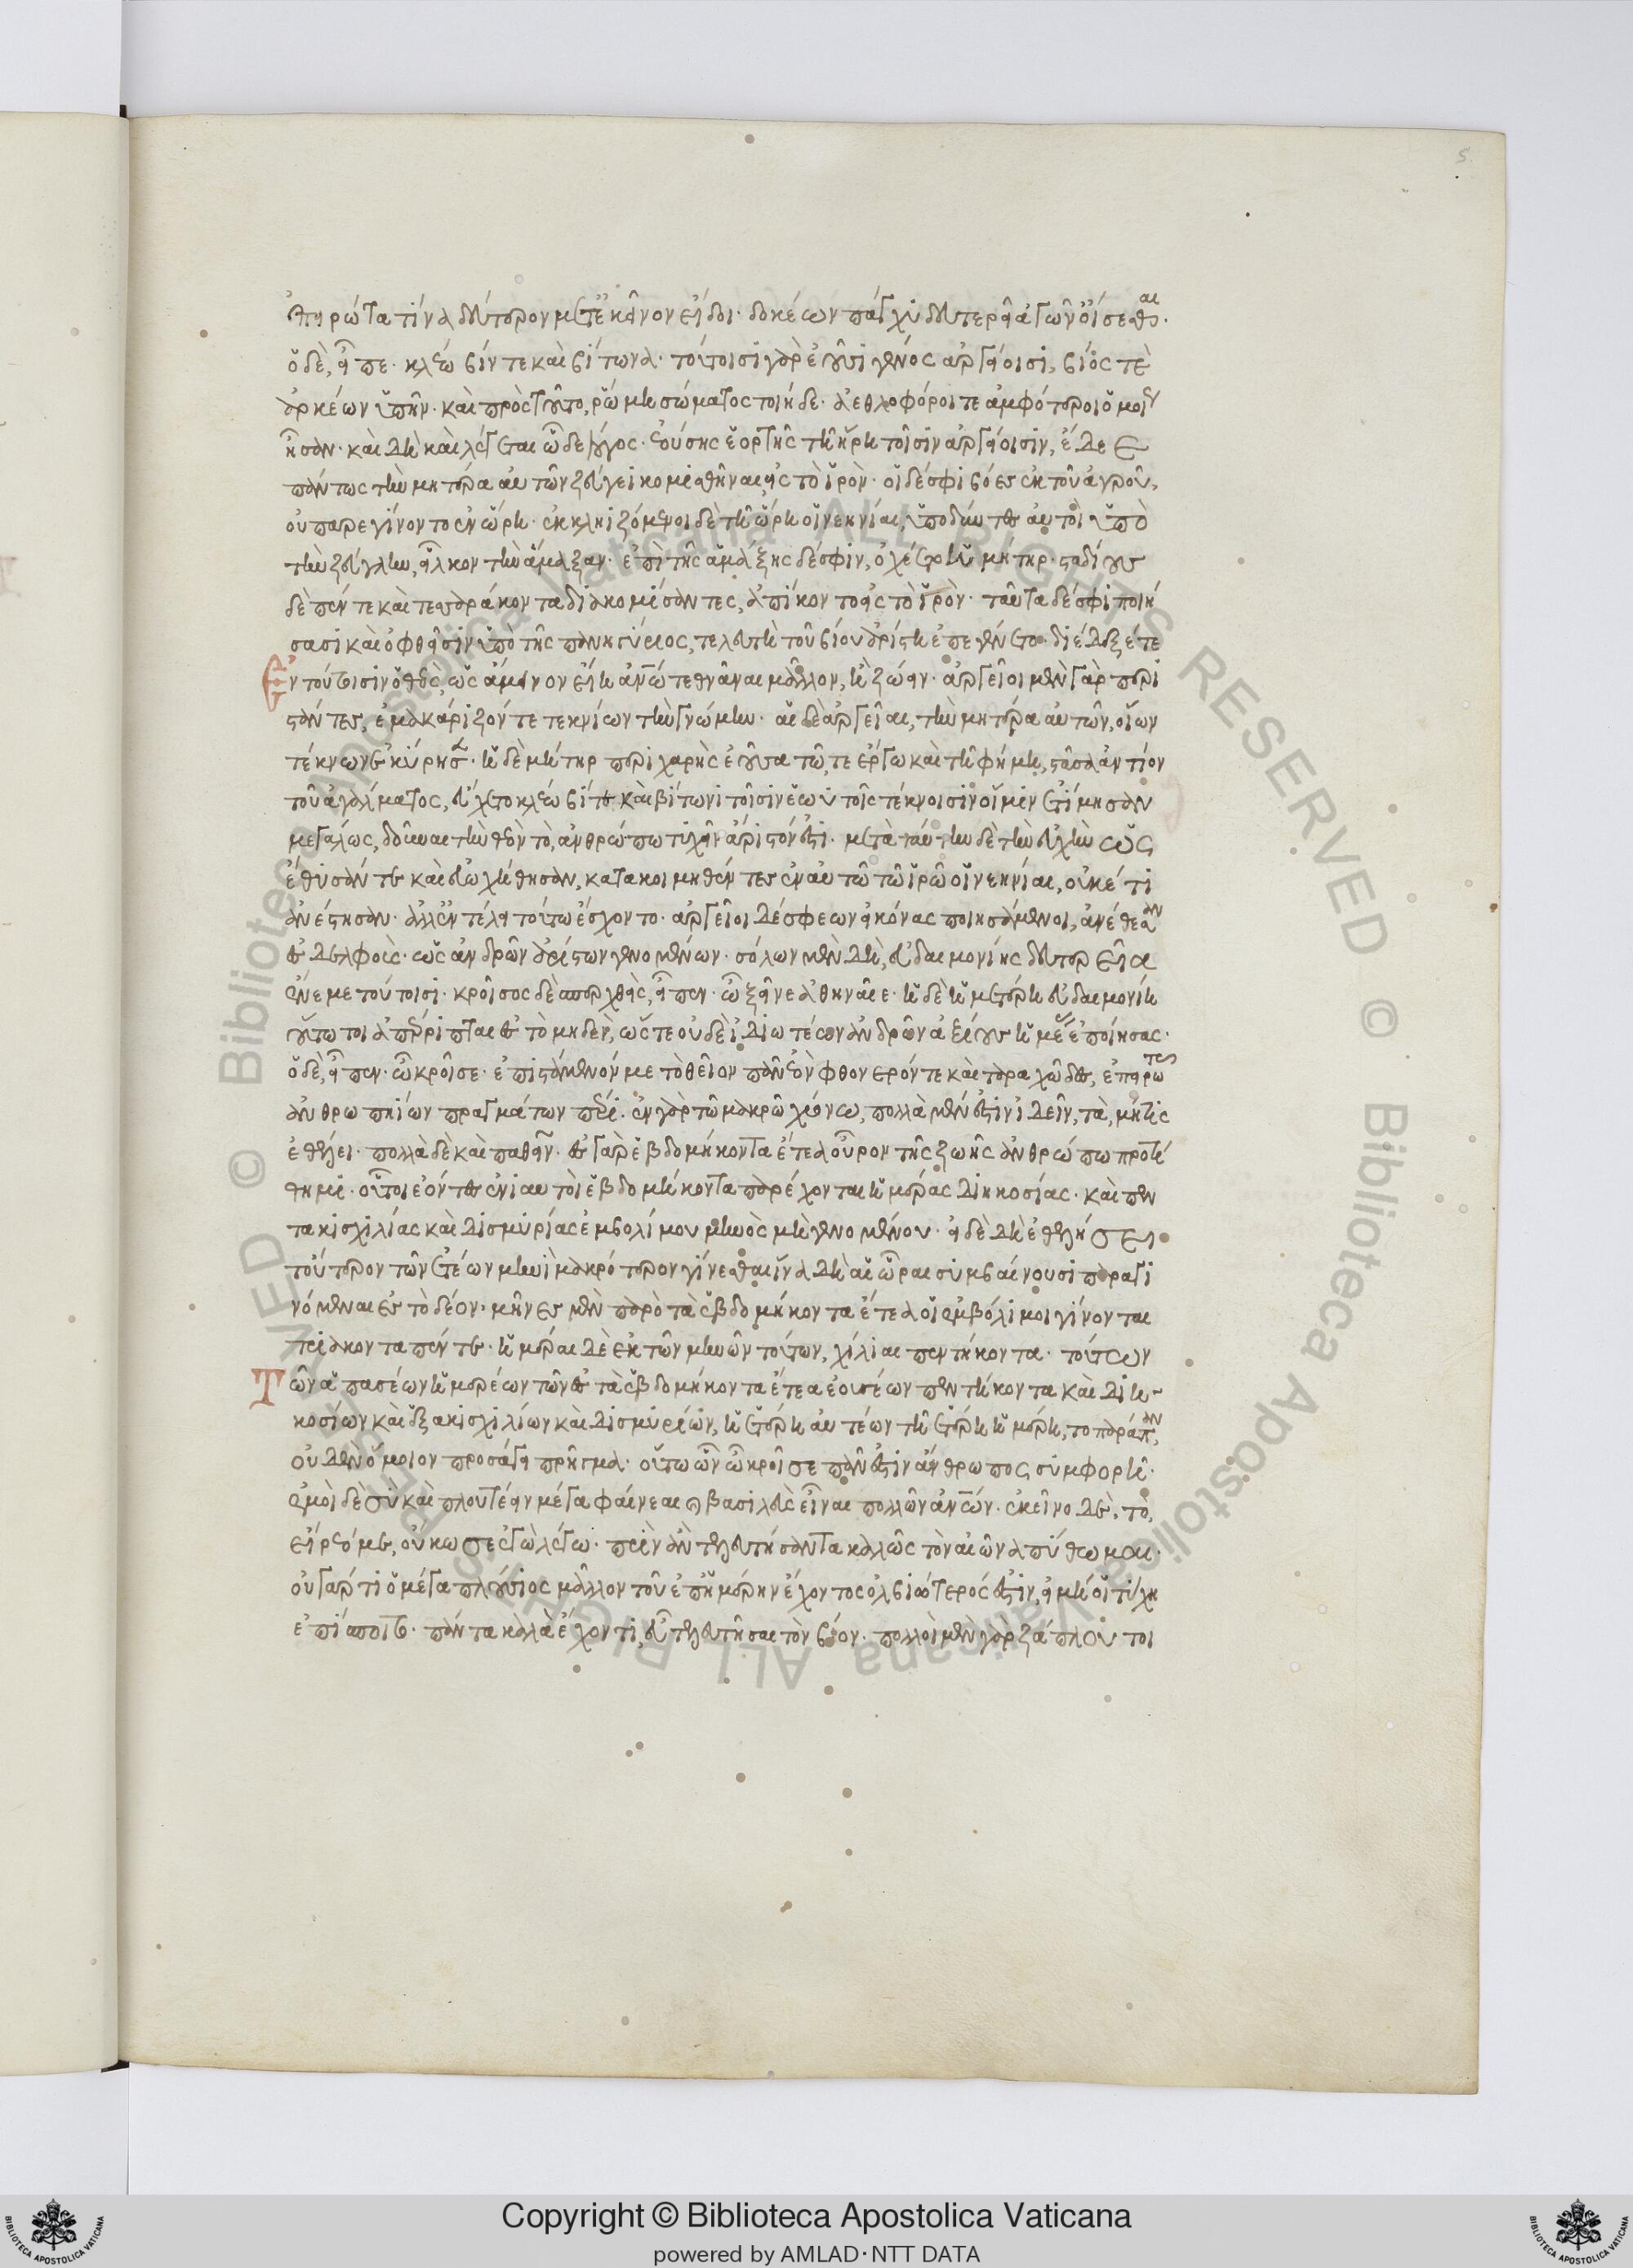 5
ἐπηρώτα τίνα δεύτερον μετ' ἐκεῖνον εἴδοι· δοκέων πάγχυ δευτερεῖα γῶν οἴσεσθαι.
ὁ δὲ, εἶπε· κλέωβίν τε καὶ βίτωνα· τούτοισι γὰρ ἐοῦσι γένος ἀργείοισι, βίός τε
ἀρκέων ὑπῆν· καὶ πρὸς τούτω, ῥώμη σώματος τοιήδε· ἀεθλοφόροι τε ἀμφότεροι ὁμοί
ἦσαν· καὶ δὴ καὶ λέγεται ὧδε λόγος· ἐούσης ἑορτῆς τῆ ἥρη τοῖσιν ἀργείοισιν, ἔδεε
πάντως τὴν μητέρα αὐτῶν ζεύγει κομισθῆναι εἰς τὸ ἱρόν· οἱ δέ σφι βόες ἐκ τοῦ ἀγροῦ,
οὐ παρεγίνοντο ἐν ὥρη· ἐκκληιζόμενοι δὲ τῆ ὥρη οἱ νεηνίαι, ὑποδύντες αὐτοὶ ὑπὸ
τὴν ζεύγλην, εἷλκον τὴν ἅμαξαν· ἐπὶ τῆς ἁμάξης δέ σφιν, ὀχέετο ἡ μήτηρ· σταδίους
δὲ πέντε καὶ τεσσεράκοντα διακομίσαντες, ἀπίκοντο εἰς τὸ ἱρόν· ταῦτα δέ σφι ποιή
σασι καὶ ὀφθεῖσιν ὑπὸ τῆς πανηγύριος, τελευτὴ τοῦ βίου ἀρίστη ἐπεγένετο· διέδεξέ τε
ἐν τούτοισιν ὁ θεὸς, ὡς ἄμεινον εἴη ἀνθρώπω τεθνάναι μᾶλλον, ἢ ζώειν· ἀργεῖοι μὲν γὰρ περι
στάντες, ἐμακάριζόν τε τεκνίων τὴν γνώμην· αἱ δὲ ἀργεῖαι, τὴν μητέρα αὐτῶν, οἵων
τέκνων ἐκύρησε· ἡ δὲ μήτηρ περιχαρὴς ἐοῦσα τῶ τε ἔργω καὶ τῆ φήμη, στᾶσα ἀντίον
τοῦ ἀγάλματος, εὔχετο κλέωβί τε καὶ βίτωνι τοῖσιν ἑωυτοῖς τέκνοισιν οἵ μιν ἐτίμησαν
μεγάλως, δοῦναι τὴν θεὸν τὸ, ἀνθρώπω τυχεῖν ἄριστόν ἐστι· μετὰ ταύτην δὲ τὴν εὐχὴν ὡς
ἔθυσάν τε καὶ εὐωχήθησαν, κατακοιμηθέντες ἐν αὐτῶ τῶ ἱρῶ οἱ νεηνίαι, οὐκέτι
ἀνέστησαν· ἀλλ' ἐν τέλει τούτω ἔσχοντο· ἀργεῖοι δέ σφεων εἰκόνας ποιησάμενοι, ἀνέθεσαν
ἐς δελφοὺς· ὡς ἀνδρῶν ἀρίστων γενομένων· σόλων μὲν δὴ, εὐδαιμονίης δευτερεῖα
ἔνεμε τούτοισι· κροῖσος δὲ σπερχθεὶς, εἶπεν· ὦ ξεῖνε ἀθηναῖε· ἡ δὲ ἡμετέρη εὐδαιμονίη
οὕτω τοι ἀπέρριπται ἐς τὸ μηδὲν, ὥστε οὐδὲ ἰδιωτέων ἀνδρῶν ἀξίους ἡμέας ἐποίησας·
ὁ δὲ, εἶπεν· ὦ κροῖσε· ἐπιστάμενόν με τὸ θεῖον πᾶν ἐὸν φθονερόν τε καὶ ταραχῶδες, ἐπηρωτᾶς
ἀνθρωπηίων πραγμάτων πέρι. ἐν γὰρ τῶ μακρῶ χρόνω, πολλὰ μὲν ἐστὶν ἰδεῖν, τὰ, μήτις
ἐθέλει· πολλὰ δὲ καὶ παθεῖν· ἐς γὰρ ἑβδομήκοντα ἔτεα οὖρον τῆς ζωῆς ἀνθρώπω προτί
θημι· οὗτοι ἐόντες ἐνιαυτοὶ ἑβδομήκοντα παρέχονται ἡμέρας διηκοσίας· καὶ πεν
τακισχιλίας καὶ δισμυρίας ἐμβολίμου μηνὸς μὴ γενομένου· εἰ δὲ δὴ ἐθελήσει
τοὔτερον τῶν ἐτέων μηνὶ μακρότερον γίνεσθαι ἵνα δὴ αἱ ὧραι συμβαίνουσι παραγι
νόμεναι ἐς τὸ δέον· μῆνες μὲν παρὰ τὰ ἑβδομήκοντα ἔτεα οἱ ἐμβόλιμοι γίνονται
τριάκοντα πέντε· ἡμέραι δὲ ἐκ τῶν μηνῶν τούτων, χίλιαι πεντήκοντα· τούτων
τῶν ἁπασέων ἡμερέων τῶν ἐς τὰ ἑβδομήκοντα ἔτεα ἐουσέων πεντήκοντα καὶ διη-
κοσίων καὶ ἑξακισχιλίων καὶ δισμυρίων, ἡ ἑτέρη αὐτέων τῆ ἑτέρη ἡμέρη, τοπαράπαν,
οὐδὲν ὅμοιον προσάγει πρῆγμα· οὕτω ὦν ὦ κροῖσε πᾶν ἐστιν ἄνθρωπος συμφορή·
ἐμοὶ δὲ σὺ καὶ πλουτέειν μέγα φαίνεαι καὶ βασιλεὺς εἶναι πολλῶν ἀνθρώπων· ἐκεῖνο δὲ, τὸ,
εἴρεόμε, οὔκω σε ἐγὼ λέγω· πρὶν ἂν τελευτήσαντα καλῶς τὸν αἰῶνα πύθωμαι·
οὐ γάρ τι ὁ μέγα πλούσιος μᾶλλον τοῦ ἐπ' ἡμέρην ἔχοντος ὀλβιώτερός ἐστιν, εἰ μή οἱ τύχη
ἐπίσποιτο· πάντα καλὰ ἔχοντι, εὖ τελευτῆσαι τὸν βίον· πολλοὶ μὲν γὰρ ζάπλουτοι
Copyright © Biblioteca Apostolica Vaticana
powered by AMLAD·NTT DATA